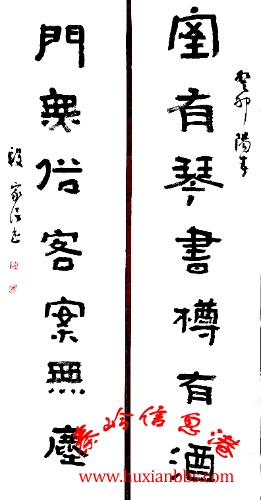 癸卯陽春
室有琴書樽有酒
門無俗客案無塵
信息港
www.huxianbbs.com